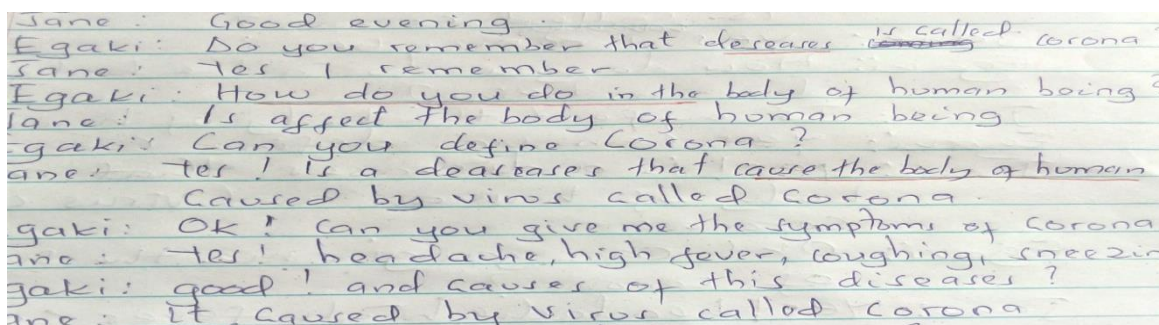 Jane : Good evening.
Egaki : Do you remember that deseases is called corona
Jane : Yes I remember
Egaki : How do you do in the body of human being ?
Jane : Is affect the body of human being
Egaki : Can you define Corona ?
ane : Yes ! Is a deaseases that cause the body of human
Caused by virus called corona.
gaki : OK ! Can you give me the symptoms of corona
ane : Yes ! headache, high fever, coughing, sneezin
gaki : good ! and causes of this diseases ?
ane : it caused by virus called corona